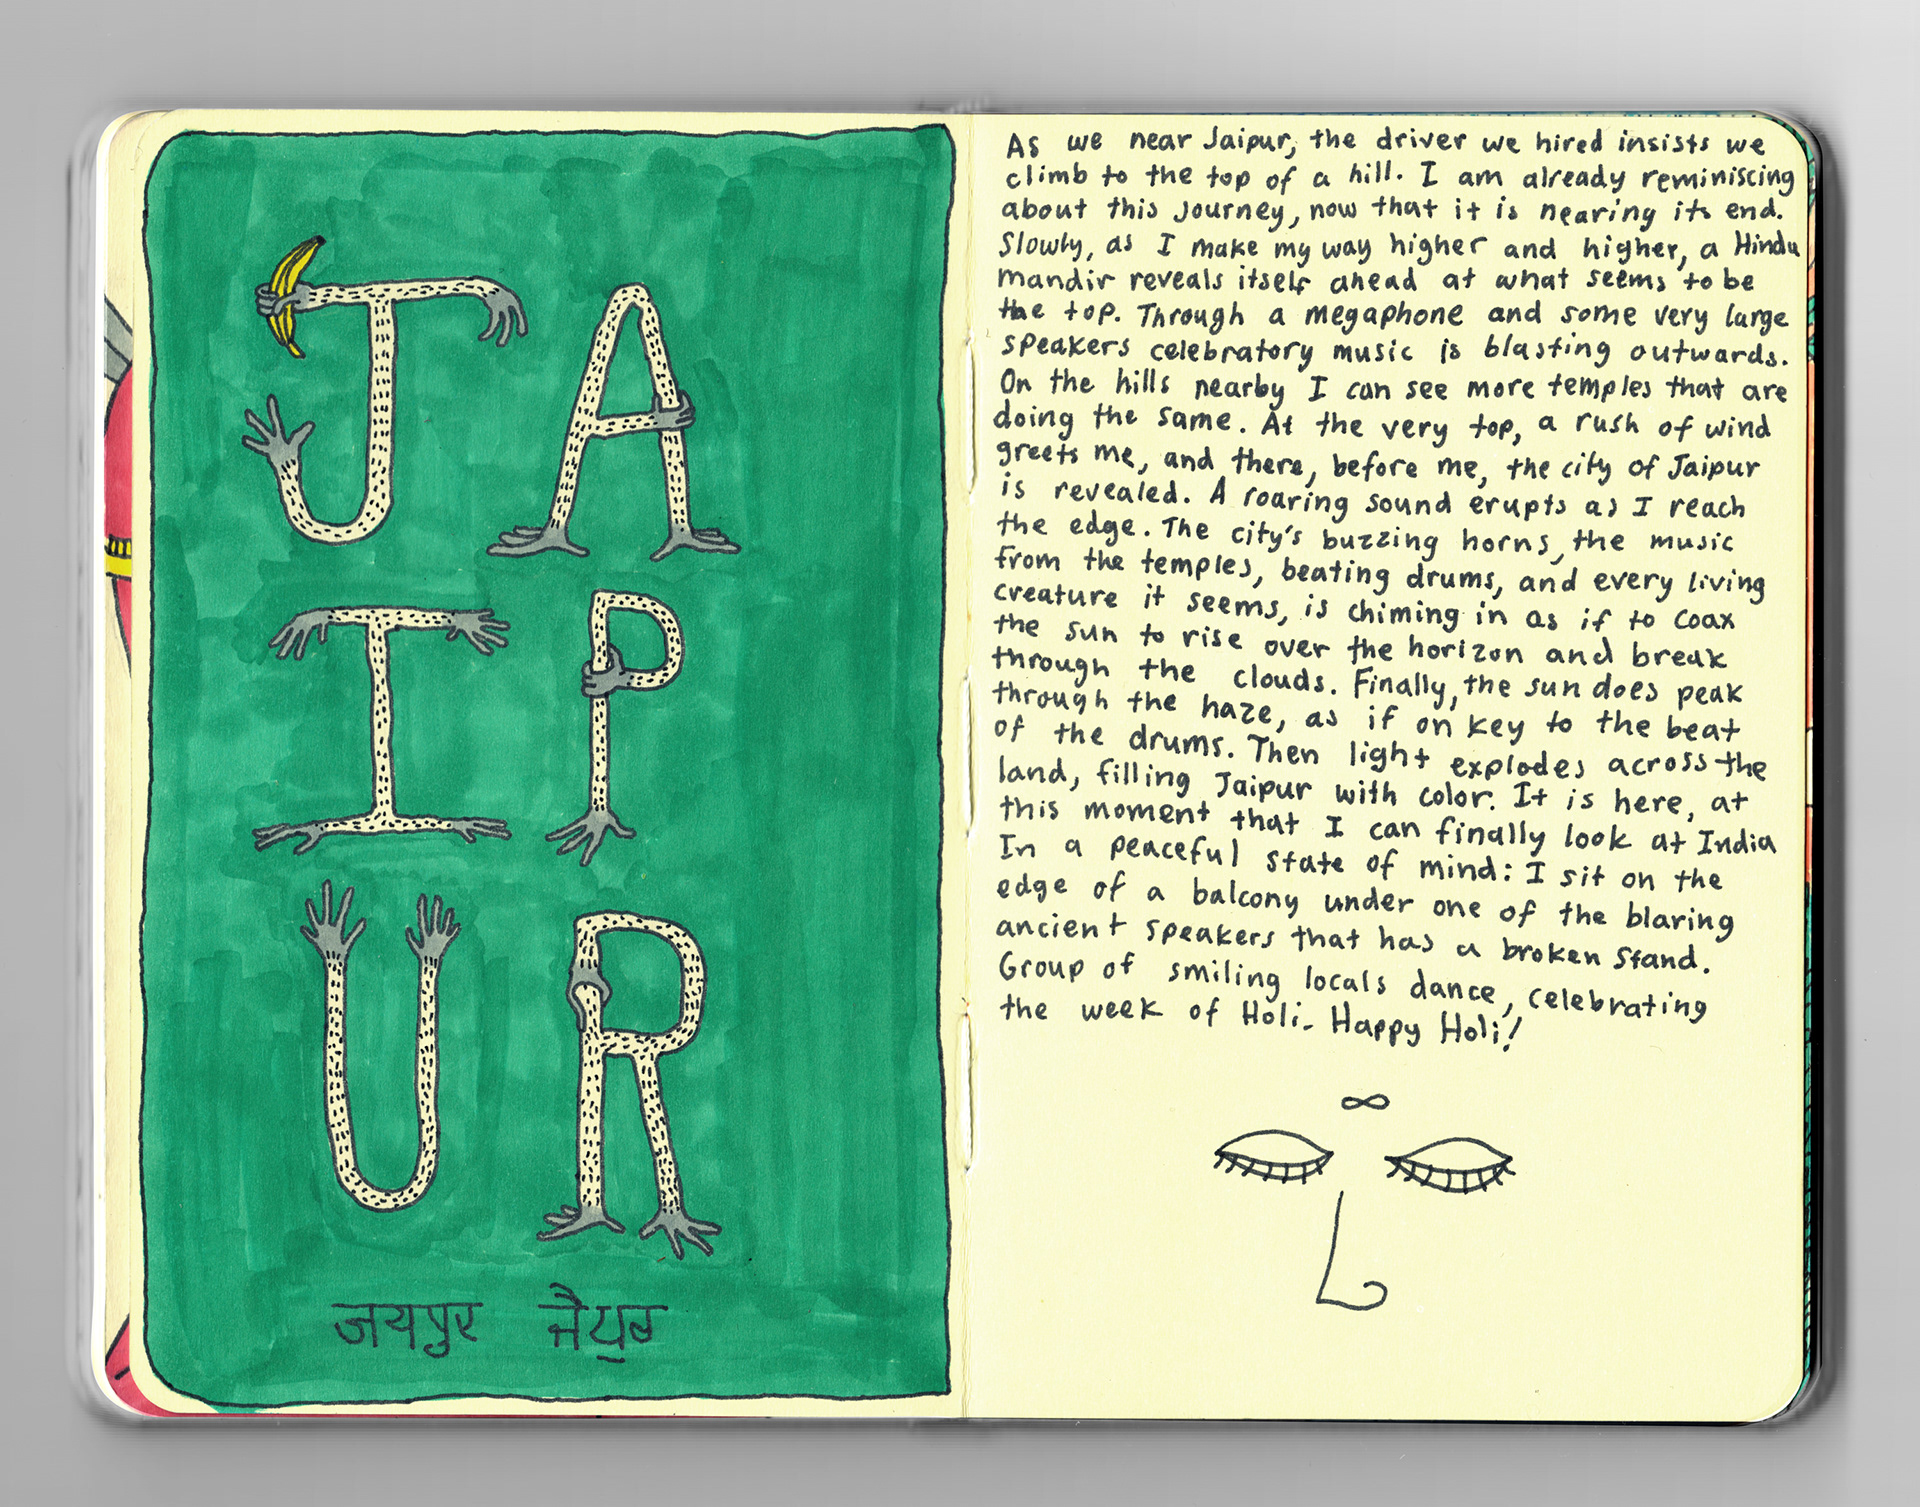 JA
IP
UR
जयपुर ਜੈਪੁਰ
As we near Jaipur, the driver we hired insists we
climb to the top of a hill. I am already reminiscing
about this journey, now that it is nearing its end.
Slowly, as I make my way higher and higher, a Hindu
mandir reveals itself ahead at what seems to be
the top. Through a megaphone and some very large
speakers celebratory music is blasting outwards.
On the hills nearby I can see more temples that are
doing the same. At the very top, a rush of wind
greets me, and there, before me, the city of Jaipur
is revealed. A roaring sound erupts as I reach
the edge. The city's buzzing horns, the music
from the temples, beating drums, and every living
creature it seems, is chiming in as if to coax
the sun to rise over the horizon and break
through the clouds. Finally, the sun does peak
through the haze, as if on key to the beat
of the drums. Then light explodes across the
land, filling Jaipur with color. It is here, at
this moment that I can finally look at India
In a peaceful state of mind: I sit on the
edge of a balcony under one of the blaring
ancient speakers that has a broken stand.
Group of smiling locals dance, celebrating
the week of Holi. Happy Holi!